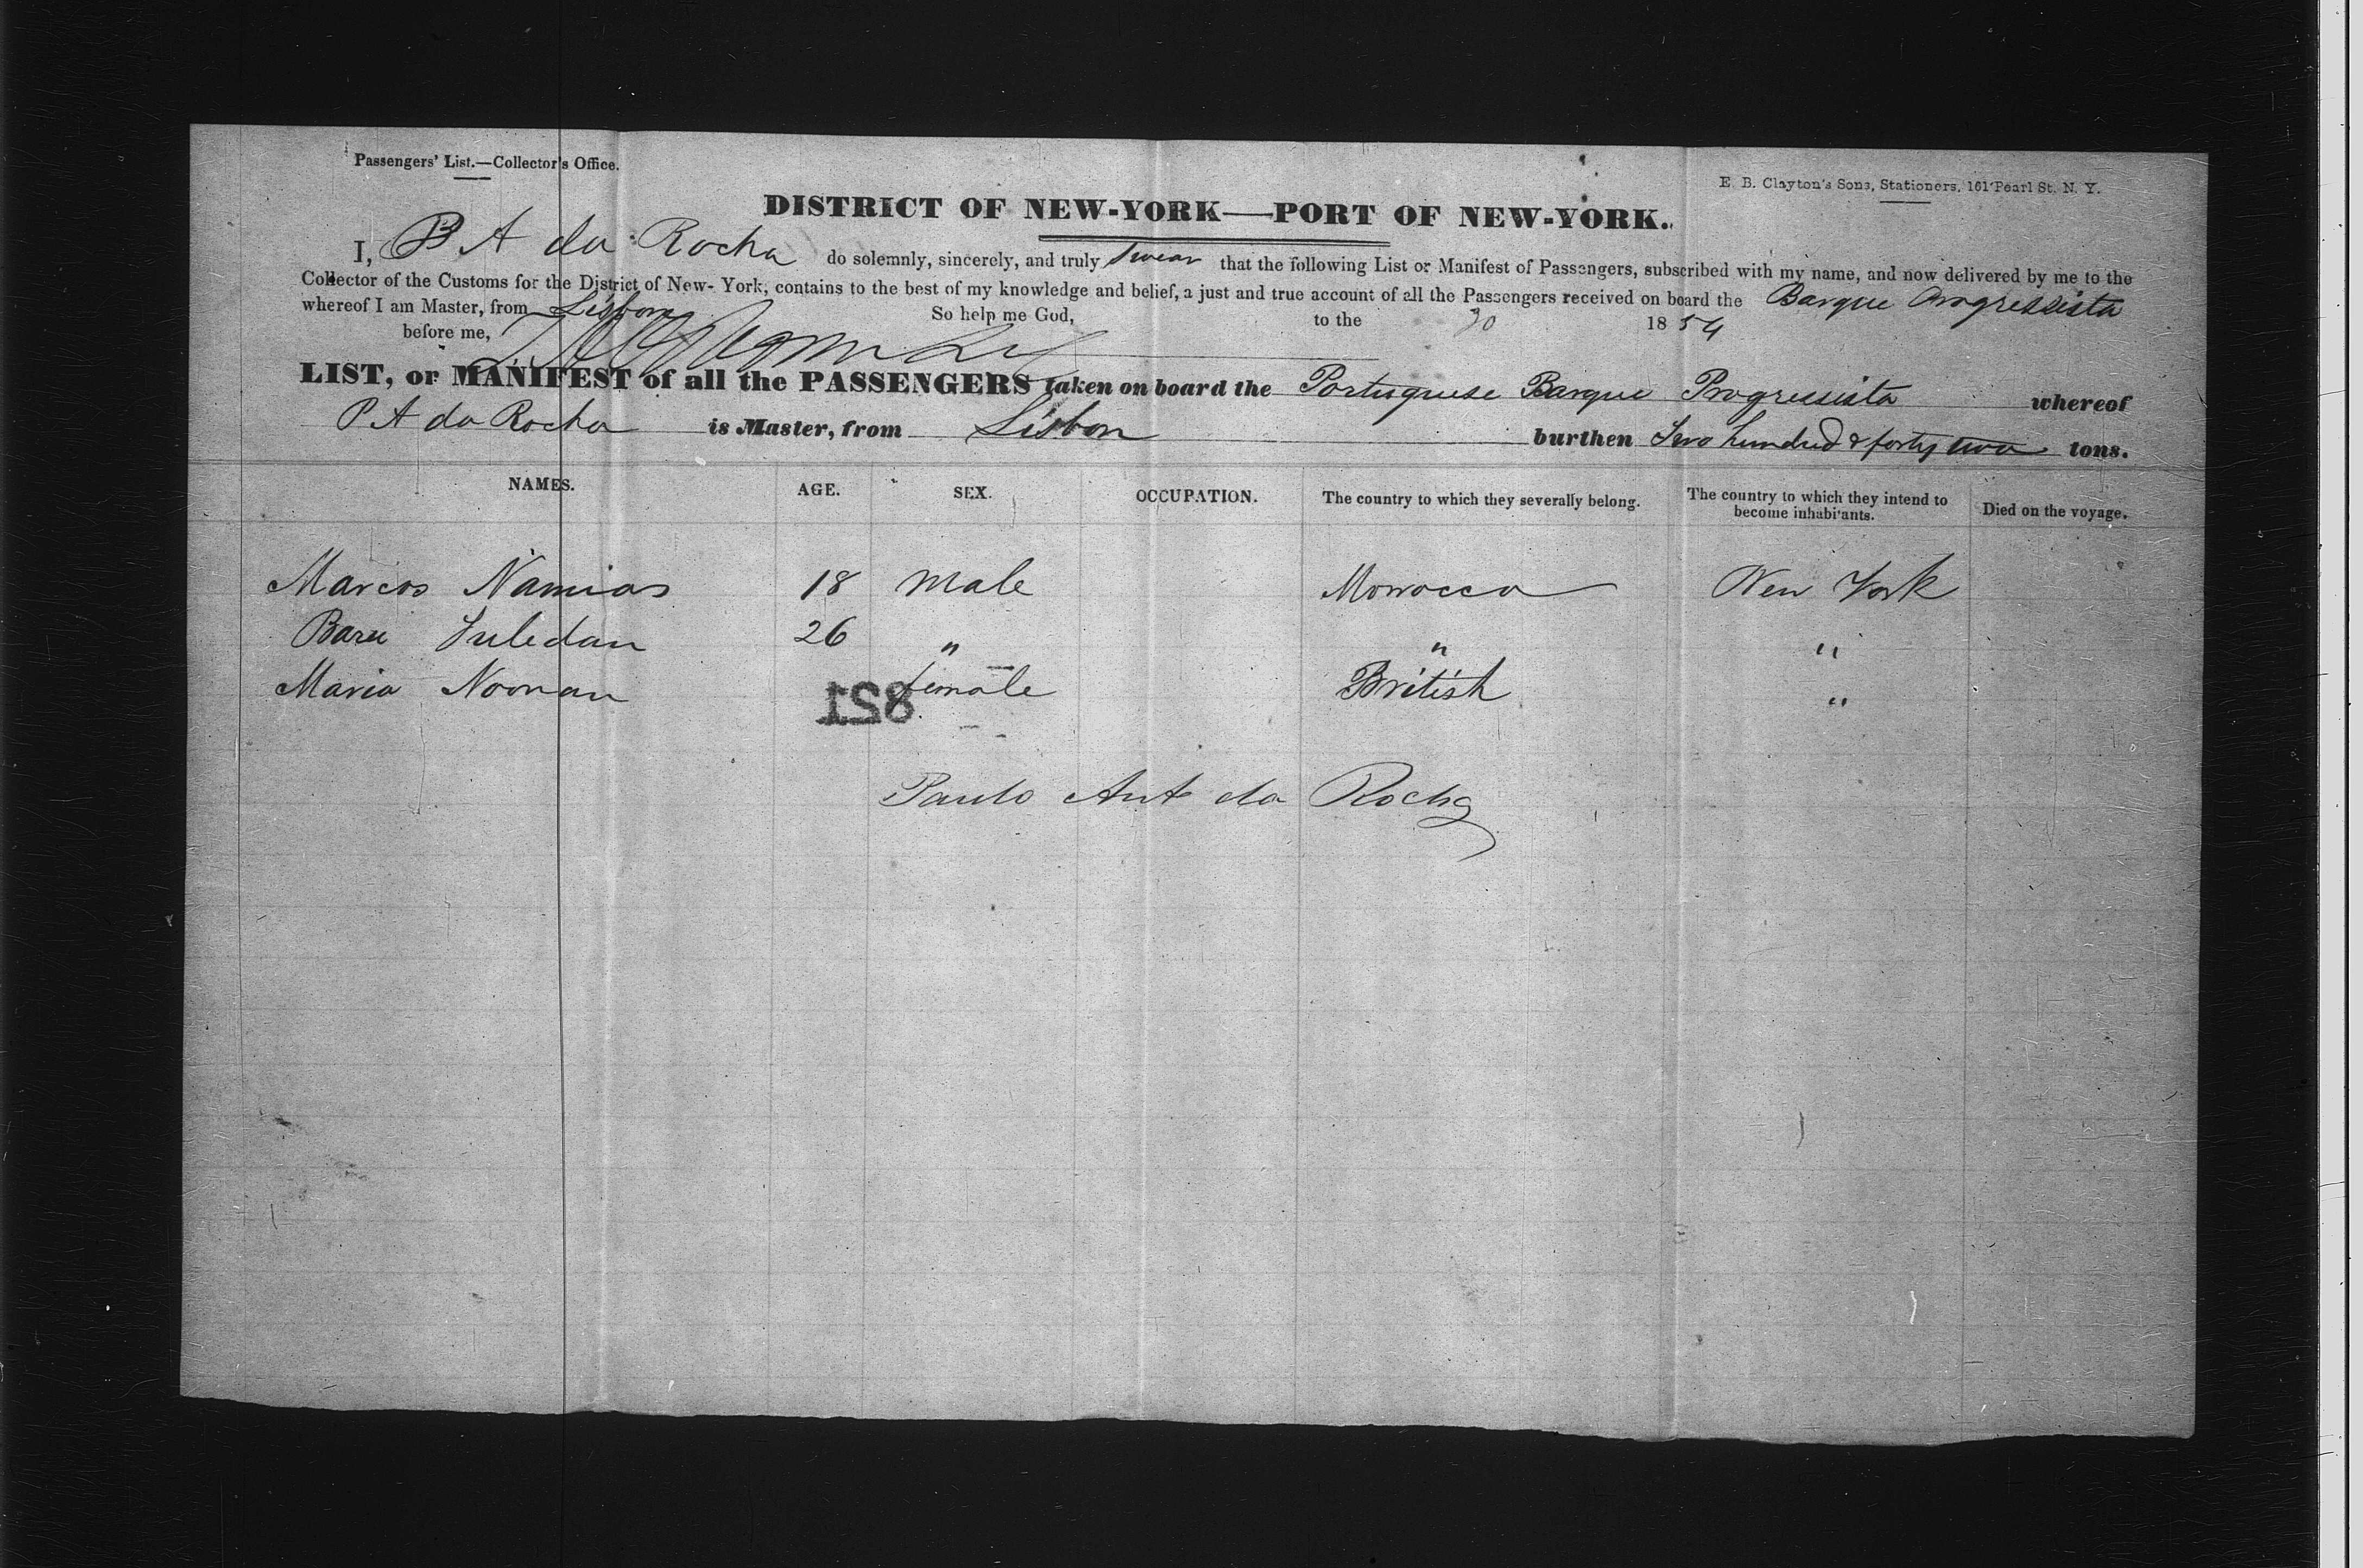 Passengers' List.—Collector's Office.
E. B. Clayton's Sons, Stationers, 161 Pearl St. N. Y.
DISTRICT OF NEW-YORK—PORT OF NEW-YORK.
I, P A da Rocha do solemnly, sincerely, and truly swear that the following List or Manifest of Passengers, subscribed with my name, and now delivered by me to the
Collector of the Customs for the District of New-York, contains to the best of my knowledge and belief, a just and true account of all the Passengers received on board the Barque Progressista
whereof I am Master, from Lisbon So help me God, to the 30 1854
before me,
LIST, or MANIFEST of all the PASSENGERS taken on board the Portuguese Barque Progressista whereof
P A da Rocha is Master, from Lisbon burthen Two hundred & forty two tons.
NAMES. AGE. SEX. OCCUPATION. The country to which they severally belong. The country to which they intend to become inhabi'ants. Died on the voyage.
Marcos Namias 18 Male Morrocco New York
26 " " "
Maria Noonan female British "
821
Paulo Ant da Rocha